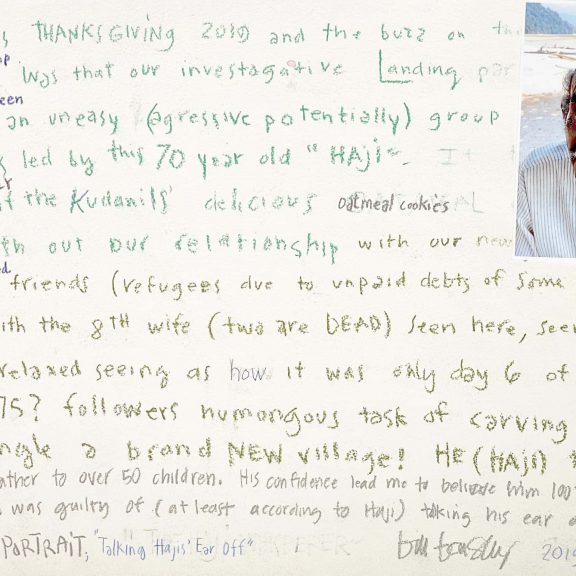 s THANKSGIVING 2019 and the buzz on th
op
was that our investagative Landing par
een
an uneasy (agressive potentially) group
led by this 70 year old "HAji".
er
of the Kudanils' delicious oatmeal cookies
th out our relationship with our new
ed
friends (refugees due to unpaid debts of some
ith the 8TH wife (two are DEAD) seen here, see
relaxed seeing as how it was only day 6 of
75? followers humongous task of carving
ngle a brand NEW village! HE (HAji)
ather to over 50 children. His confidence lead me to believe him 100
was guilty of (at least according to Haji) talking his ear o
PORTRAIT, "Talking Hajis' Ear Off" 2019